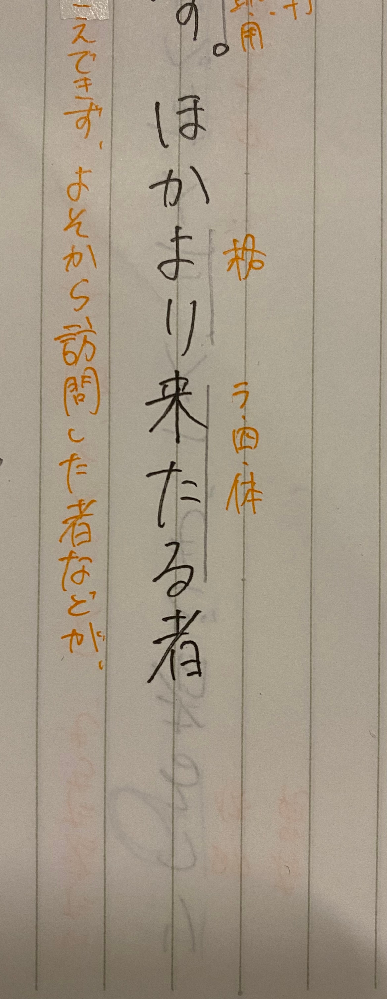 用
格
ラ・四・体
す。ほかより来たる者
えできず、よそから訪問した者などが、